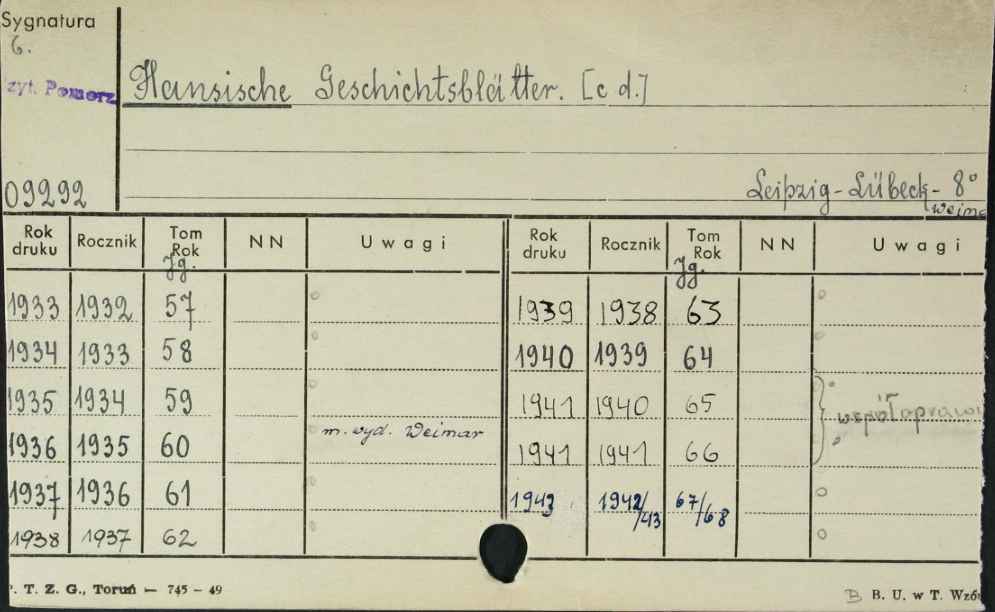 Sygnatura
6.
zyt. Pomorz
Hansische Geschichtsblätter. [c d.]
09292
Leipzig-Lübeck- 8°
Weima
Rok druku Rocznik Tom Rok Jg. NN Uwagi Rok druku Rocznik Tom Rok Jg. NN Uwagi
1933 1932 57 1939 1938 63
1934 1933 58 1940 1939 64
1935 1934 59 1941 1940 65 współopraw
1936 1935 60 m. wyd. Weimar 1941 1941 66
1937 1936 61 1943 1942/43 67/68
1938 1937 62
. T. Z. G., Toruń — 745 - 49
B B. U. w T. Wzó